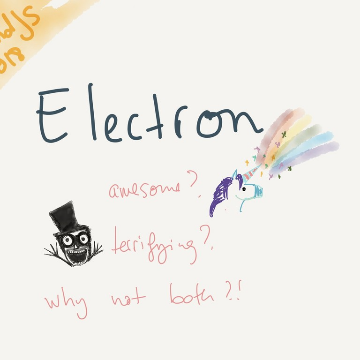 Electron
awesome?
terrifying?
why not both?!